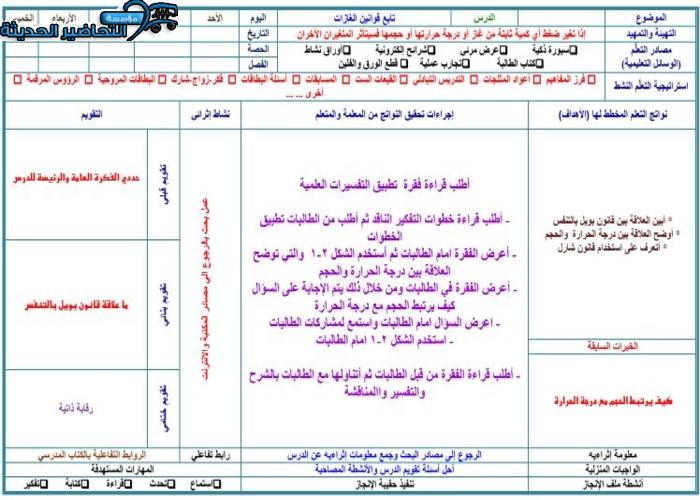 الموضوع
الدرس
تابع قوانين الغازات
اليوم
الأحد
الأربعاء
الخميس
مؤسسة
التحاضير الحديثة
التهيئة والتمهيد
إذا تغير ضغط أي كمية ثابتة من غاز أو درجة حرارتها أو حجمها فسيتأثر المتغيران الآخران
التاريخ
مصادر التعلم
(الوسائل التعليمية)
سبورة ذكية
عرض مرئي
شرائح إلكترونية
أوراق نشاط
كتاب الطالبة
تجارب عملية
قطع الورق والفلين
الحصة
الفصل
استراتيجية التعلم النشط
فرز المفاهيم
أعواد المثلجات
التدريس التبادلي
القبعات الست
المسابقات
أسئلة البطاقات
فكر-زواج-شارك
البطاقات المروحية
الرؤوس المرقمة
أخرى ... ...
نواتج التعلم المخطط لها (الأهداف)
إجراءات تحقيق النواتج من المعلمة والمتعلم
نشاط إثرائي
التقويم
* أبين العلاقة بين قانون بويل بالتنفس
* أوضح العلاقة بين درجة الحرارة والحجم
* أتعرف على استخدام قانون شارل
الخبرات السابقة
كيف يرتبط الحجم مع درجة الحرارة
أطلب قراءة فقرة تطبيق التفسيرات العلمية
- أطلب قراءة خطوات التفكير الناقد ثم أطلب من الطالبات تطبيق
الخطوات
- أعرض الفقرة امام الطالبات ثم أستخدم الشكل ٢-١ والتي توضح
العلاقة بين درجة الحرارة والحجم
- أعرض الفقرة في الطالبات ومن خلال ذلك يتم الإجابة على السؤال
كيف يرتبط الحجم مع درجة الحرارة
- اعرض السؤال امام الطالبات واستمع لمشاركات الطالبات
- استخدم الشكل ٢-١ امام الطالبات
- أطلب قراءة الفقرة من قبل الطالبات ثم أتناولها مع الطالبات بالشرح
والتفسير والمناقشة
عمل بحث بالرجوع الى مصادر المكتبة والانترنت
تقويم قبلي
حددي الفكرة العامة والرئيسة للدرس
تقويم بنائي
ما علاقة قانون بويل بالتنفس
تقويم ختامي
رقابة ذاتية
معلومة إثرائيه
الرجوع إلى مصادر البحث وجمع معلومات إثراءيه عن الدرس
رابط تفاعلي
الروابط التفاعلية بالكتاب المدرسي
الواجبات المنزلية
أحل أسئلة تقويم الدرس والأنشطة المصاحبة
المهارات المستهدفة
أنشطة ملف الإنجاز
تنفيذ حقيبة الإنجاز
استماع
تحدث
قراءة
كتابة
تفكير